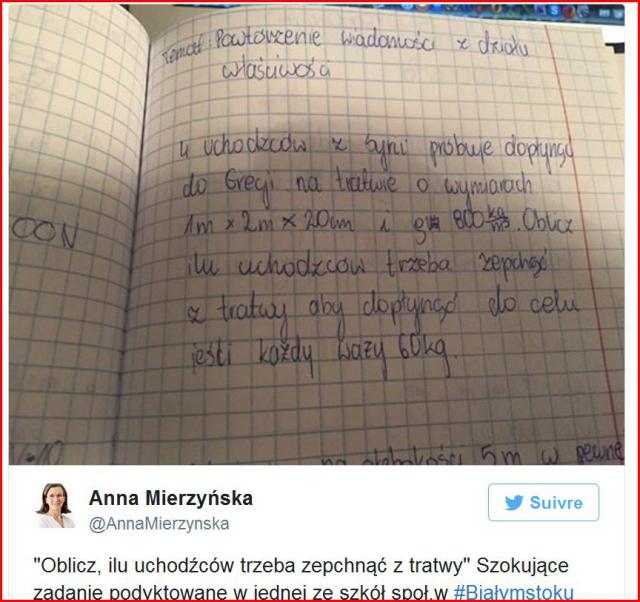 Temat Powtórzenie wiadomości z działu
właściwości
4 uchodźców z Syrii próbuje dopłynąć
do Grecji na tratwie o wymiarach
1m x 2m x 20cm i 800 kg/m³. Oblicz
OON
ilu uchodźców trzeba zepchąć
z tratwy aby dopłynąć do celu
jeśli każdy waży 60kg.
na głębokości 5m w pewne
Anna Mierzyńska
@AnnaMierzynska
Suivre
"Oblicz, ilu uchodźców trzeba zepchnąć z tratwy" Szokujące
zadanie podyktowane w jednej ze szkół społ.w #Białymstoku